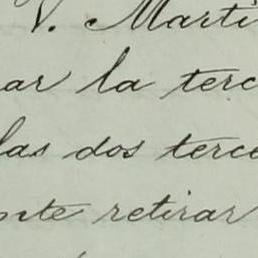 V. Marti
ar la terc
las dos terce
nte retirar